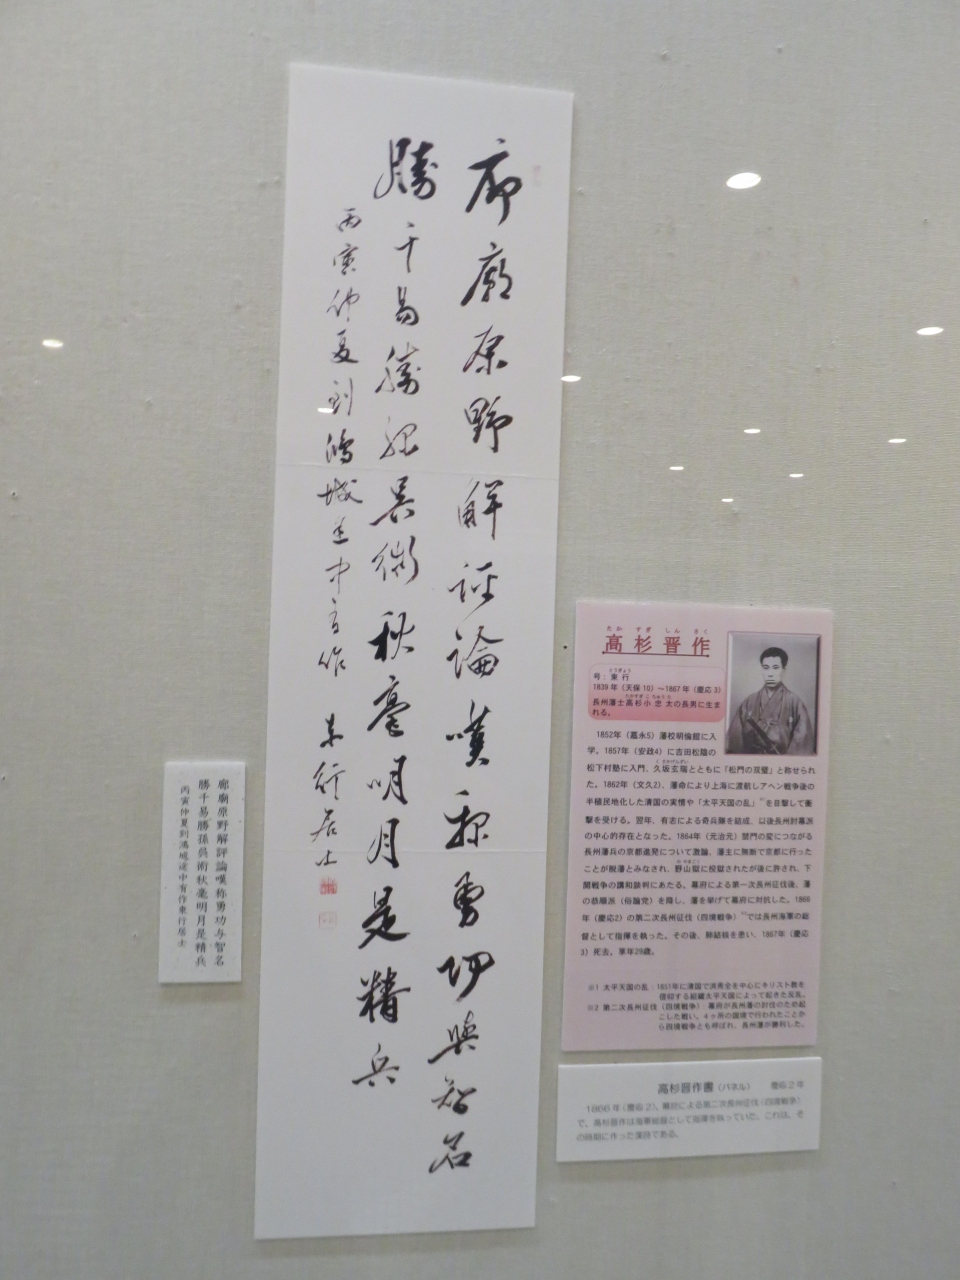 廊廟原野解評論嘆称勇功與智名
勝千易勝孫呉術秋毫明月是精兵
丙寅仲夏到鴻城途中有作 東行居士
廊廟原野解評論嘆称勇功与智名
勝千易勝孫呉術秋毫明月是精兵
丙寅仲夏到鴻城途中有作東行居士
たか すぎ しん さく
高杉晋作
とうぎょう
号:東行
1839年(天保10)~1867年(慶応3)
たかすぎ こ ちゅうた
長州藩士高杉小忠太の長男に生ま
れる。
1852年(嘉永5)藩校明倫館に入
学。1857年(安政4)に吉田松陰の
くさかげんずい
松下村塾に入門、久坂玄瑞とともに「松門の双璧」と称せられ
た。1862年(文久2)、藩命により上海に渡航しアヘン戦争後の
半植民地化した清国の実情や「太平天国の乱」※1を目撃して衝
撃を受ける。翌年、有志による奇兵隊を結成、以後長州討幕派
の中心的存在となった。1864年(元治元)禁門の変につながる
長州藩兵の京都進発について激論、藩主に無断で京都に行った
のやまごく
ことが脱藩とみなされ、野山獄に投獄されたが後に許され、下
関戦争の講和談判にあたる。幕府による第一次長州征伐後、藩
の恭順派(俗論党)を降し、藩を挙げて幕府に対抗した。1866
年(慶応2)の第二次長州征伐(四境戦争)※2では長州海軍の総
督として指揮を執った。その後、肺結核を患い、1867年(慶応
3)死去。享年29歳。
※1 太平天国の乱:1851年に清国で洪秀全を中心にキリスト教を
信仰する組織太平天国によって起きた反乱。
※2 第二次長州征伐(四境戦争):幕府が長州藩の討伐のため起
こした戦い。4ヶ所の国境で行われたことか
ら四境戦争とも呼ばれ、長州藩が勝利した。
高杉晋作書(パネル) 慶応2年
1866年(慶応2)、幕府による第二次長州征伐(四境戦争)
で、高杉晋作は海軍総督として指揮を執っていた。これは、そ
の時期に作った漢詩である。